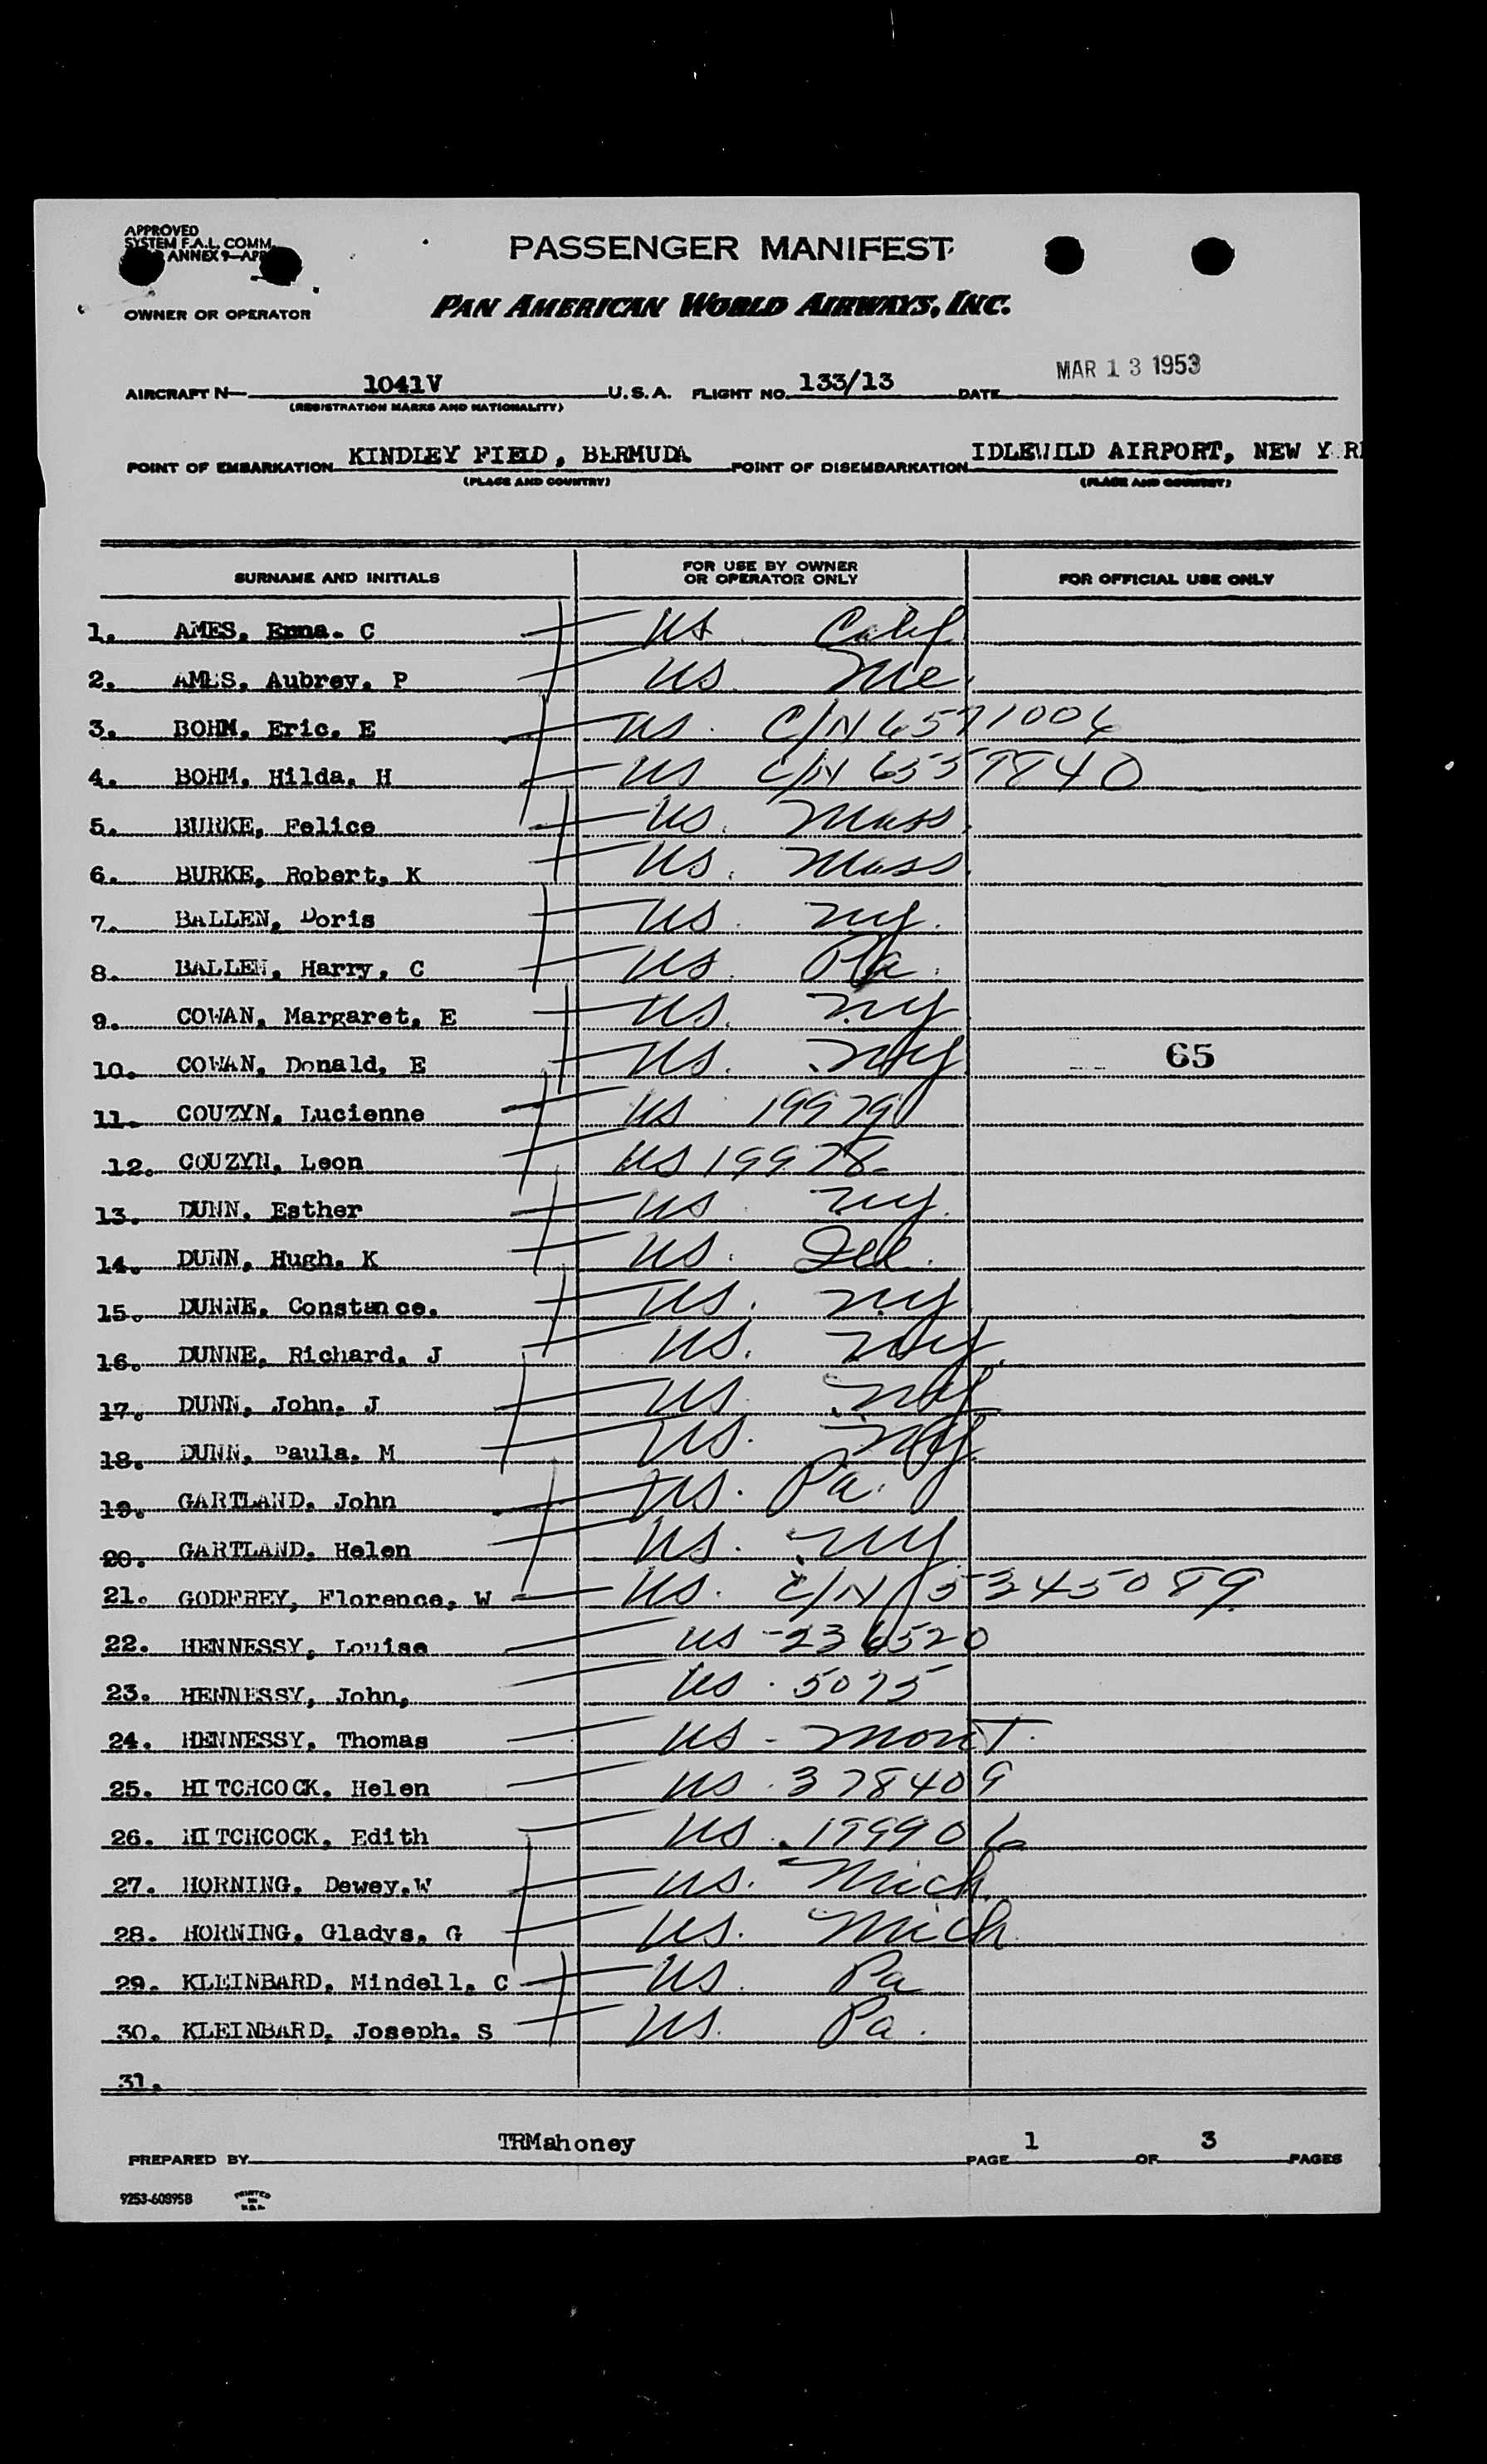 APPROVED
SYSTEM F.A.L. COMM.
ANNEX 9—APP
PASSENGER MANIFEST
OWNER OR OPERATOR PAN AMERICAN WORLD AIRWAYS, INC.
AIRCRAFT N— 1041V U.S.A. FLIGHT NO. 133/13 DATE MAR 13 1953
(REGISTRATION MARKS AND NATIONALITY)
POINT OF EMBARKATION KINDLEY FIELD, BERMUDA POINT OF DISEMBARKATION IDLEWILD AIRPORT, NEW Y R
(PLACE AND COUNTRY) (PLACE AND COUNTRY)
SURNAME AND INITIALS FOR USE BY OWNER OR OPERATOR ONLY FOR OFFICIAL USE ONLY
1. AMES, Enna. C US Calif
2. AMES, Aubrey. P US Me.
3. BOHM, Eric. E US. C/N 6571006
4. BOHM, Hilda. H US C/N 6559840
5. BURKE, Felice US. Mass.
6. BURKE, Robert, K US. Mass.
7. BALLEN, Doris US. ny.
8. BALLEN, Harry, C US. Pa.
9. COWAN, Margaret, E US. ny
10. COWAN, Donald, E US. ny 65
11. COUZYN, Lucienne US 19979
12. COUZYN, Leon US 19978
13. DUNN, Esther US ny.
14. DUNN, Hugh. K US.
15. DUNNE, Constance. US. ny
16. DUNNE, Richard, J US. ny.
17. DUNN, John. J US. ny
18. DUNN, Paula. M US. ny
19. GARTLAND, John US. Pa.
20. GARTLAND, Helen US. ny
21. GODFREY, Florence, W US. C/N 5345089
22. HENNESSY, Louise US - 236520
23. HENNESSY, John, US. 5075
24. HENNESSY, Thomas US - Mont.
25. HITCHCOCK, Helen US. 378409
26. HITCHCOCK, Edith US. 199906
27. HORNING, Dewey.W US. Mich.
28. HORNING, Gladys, G US. Mich
29. KLEINBARD, Mindell, C US. Pa
30. KLEINBARD, Joseph. S US. Pa.
31.
PREPARED BY TRMahoney PAGE 1 OF 3 PAGES
9253-60895B PRINTED IN U.S.A.